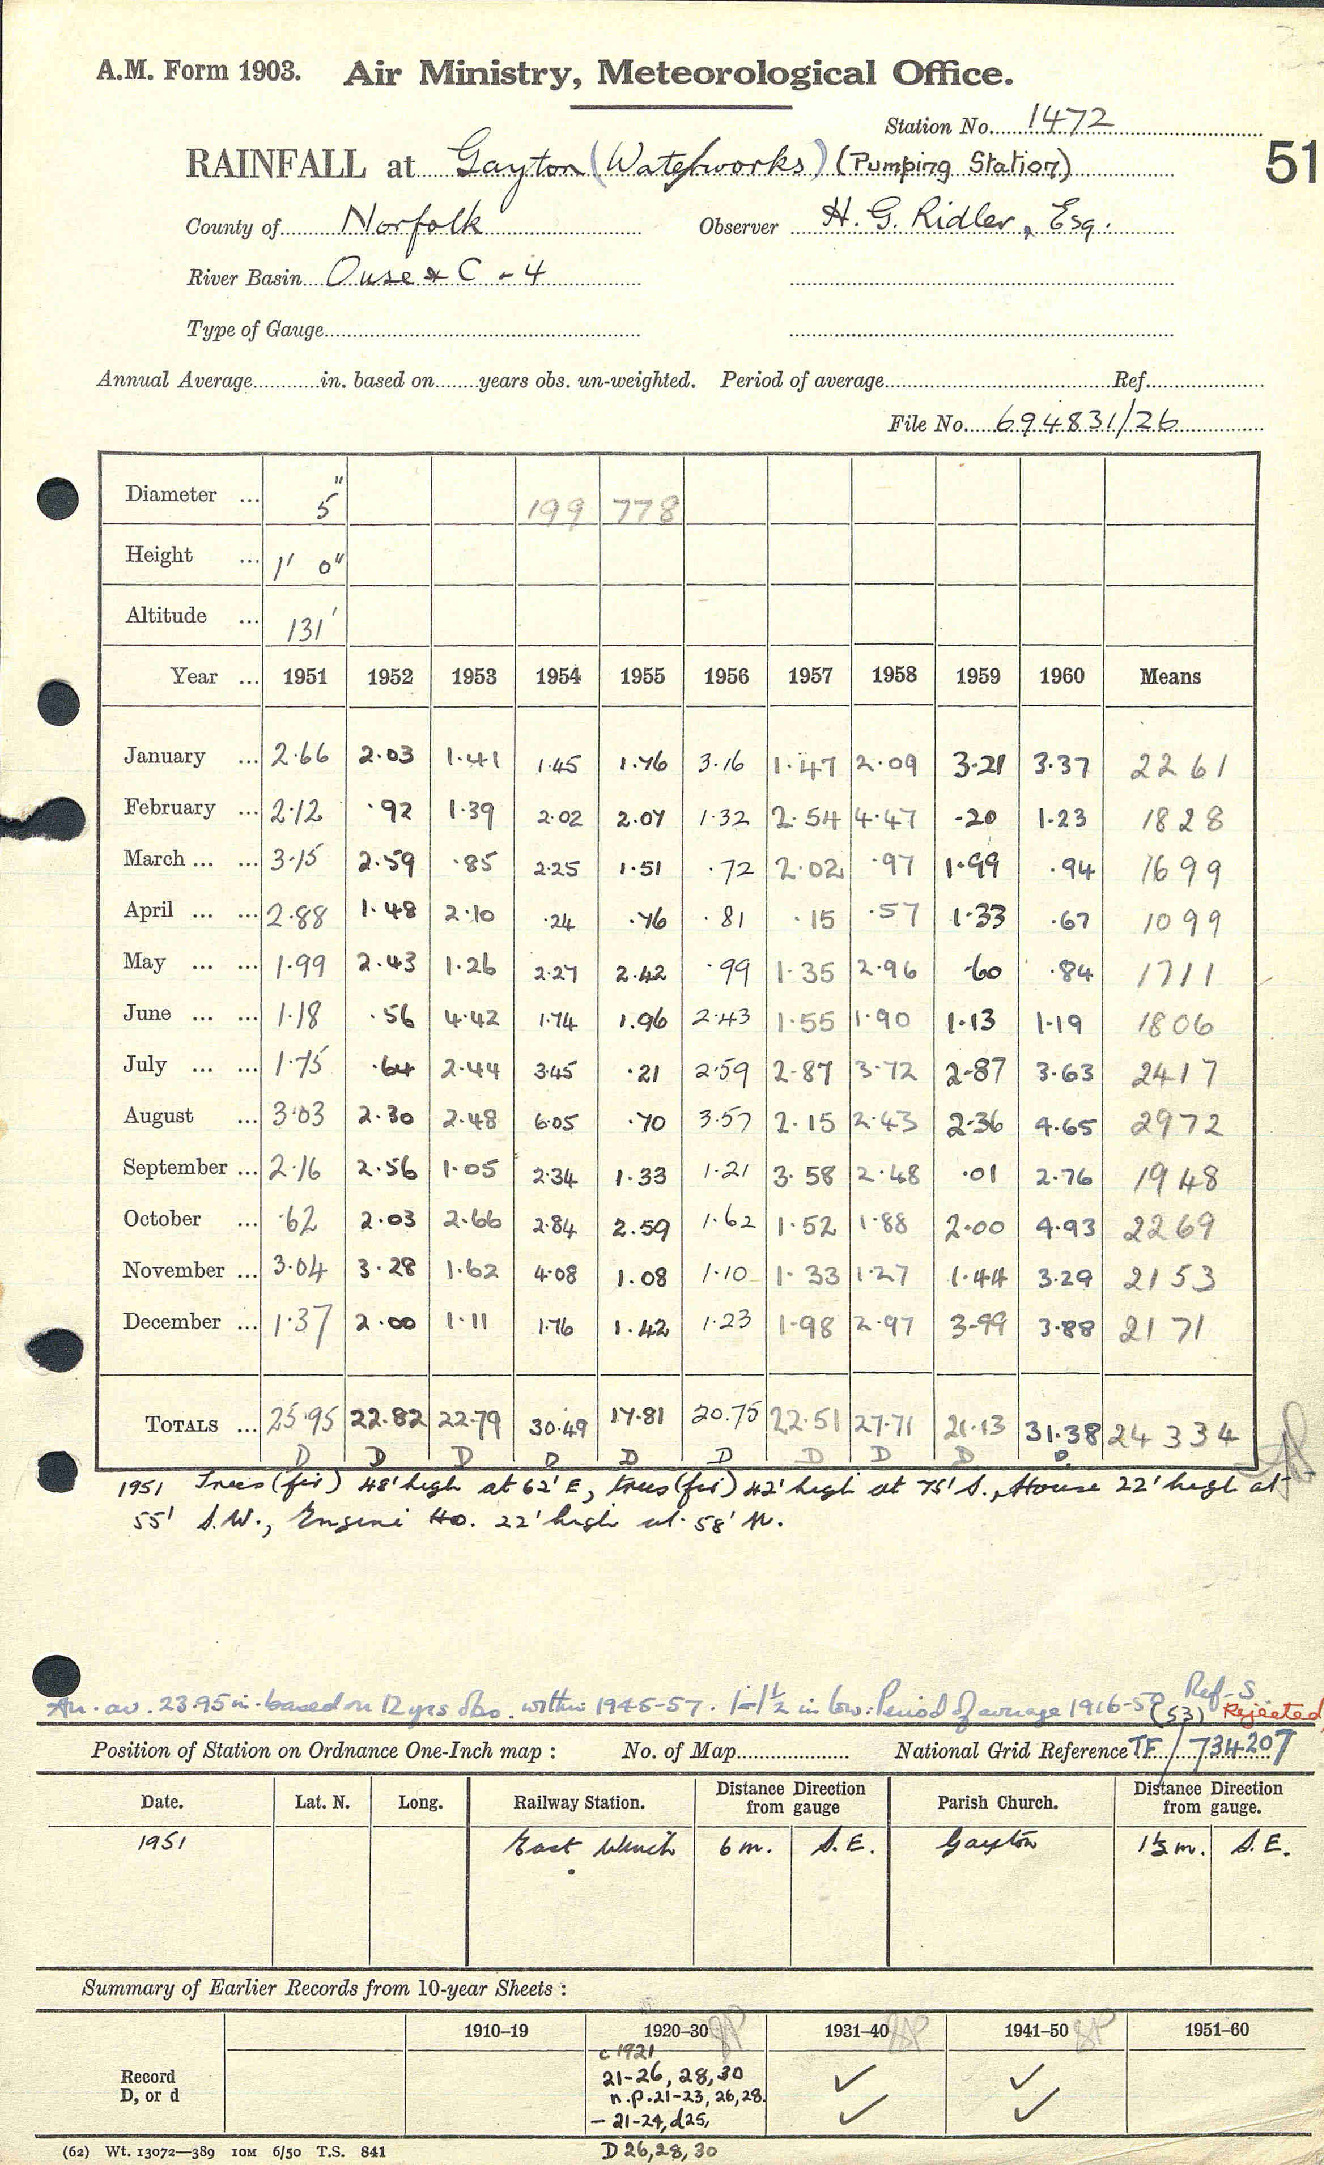 A.M. Form 1903. Air Ministry, Meteorological Office.
Station No. 1472
RAINFALL at Gayton (Waterworks) (Pumping Station)
51
County of Norfolk Observer H. G. Ridler, Esq.
River Basin Ouse & C - 4
Type of Gauge
Annual Average in. based on years obs. un-weighted. Period of average Ref.
File No. 694831/26
Diameter ... 5" 199 778
Height ... 1' 0"
Altitude ... 131'
Year ... 1951 1952 1953 1954 1955 1956 1957 1958 1959 1960 Means
January ... 2.66 2.03 1.41 1.45 1.76 3.16 1.47 2.09 3.21 3.37 2261
February ... 2.12 .92 1.39 2.02 2.07 1.32 2.54 4.47 .20 1.23 1828
March ... ... 3.15 2.59 .85 2.25 1.51 .72 2.02 .97 1.99 .94 1699
April ... ... 2.88 1.48 2.10 .24 .76 .81 .15 .57 1.33 .67 1099
May ... ... 1.99 2.43 1.26 2.27 2.42 .99 1.35 2.96 .60 .84 1711
June ... ... 1.18 .56 4.42 1.74 1.96 2.43 1.55 1.90 1.13 1.19 1806
July ... ... 1.75 .64 2.44 3.45 .21 2.59 2.87 3.72 2.87 3.63 2417
August ... 3.03 2.30 2.48 6.05 .70 3.57 2.15 2.43 2.36 4.65 2972
September ... 2.16 2.56 1.05 2.34 1.33 1.21 3.58 2.48 .01 2.76 1948
October ... .62 2.03 2.66 2.84 2.59 1.62 1.52 1.88 2.00 4.93 2269
November ... 3.04 3.28 1.62 4.08 1.08 1.10 1.33 1.27 1.44 3.29 2153
December ... 1.37 2.00 1.11 1.76 1.42 1.23 1.98 2.97 3.99 3.88 2171
TOTALS ... 25.95 22.82 22.79 30.49 17.81 20.75 22.51 27.71 21.13 31.38 24334
D D D D D D D D D D
1951 Trees (fir) 48' high at 62' E, trees (fir) 42' high at 75' S., House 22' high at
55' S.W., Engine Ho. 22' high at 58' N.
An. av. 23.95 in. based on 12 yrs obs. within 1945-57. 1-1½ in low. Period of average 1916-50 Ref. S
(53) Rejected
Position of Station on Ordnance One-Inch map : No. of Map National Grid Reference TF/734207
Date. Lat. N. Long. Railway Station. Distance Direction from gauge Parish Church. Distance Direction from gauge.
1951 East Winch 6 m. S.E. Gayton 1½ m. S.E.
Summary of Earlier Records from 10-year Sheets :
1910–19 1920–30 1931–40 1941–50 1951–60
c 1921
Record 21-26, 28, 30 ✓ ✓
D, or d n.p. 21-23, 26, 28.
— 21-24, d25, ✓ ✓
D 26, 28, 30
(62) Wt. 13072—389 10M 6/50 T.S. 841